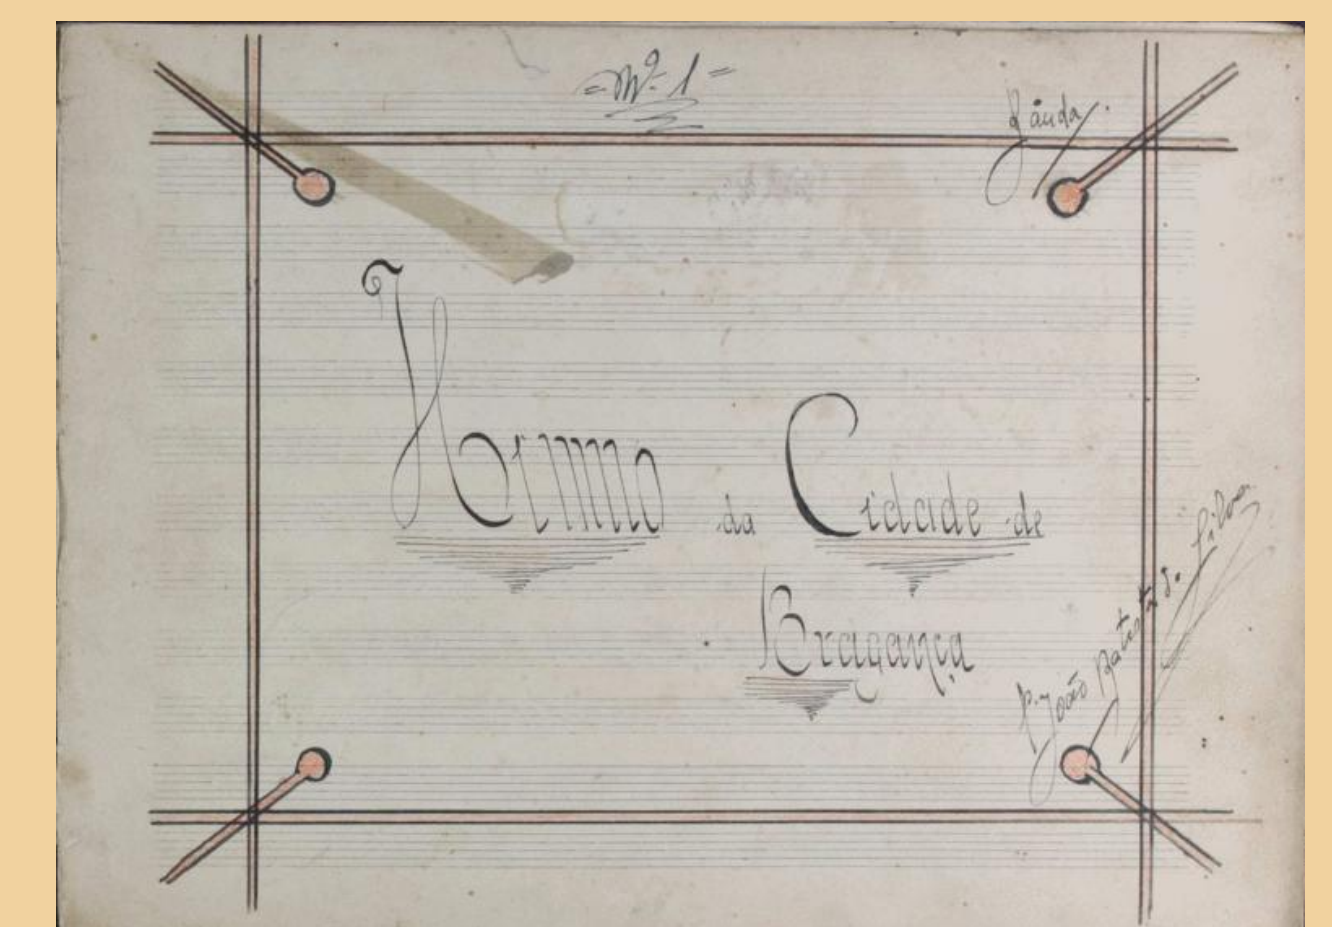 = Nº 1 =
Banda
Himno da Cidade de
Bragança
P. João Batista d. Silva